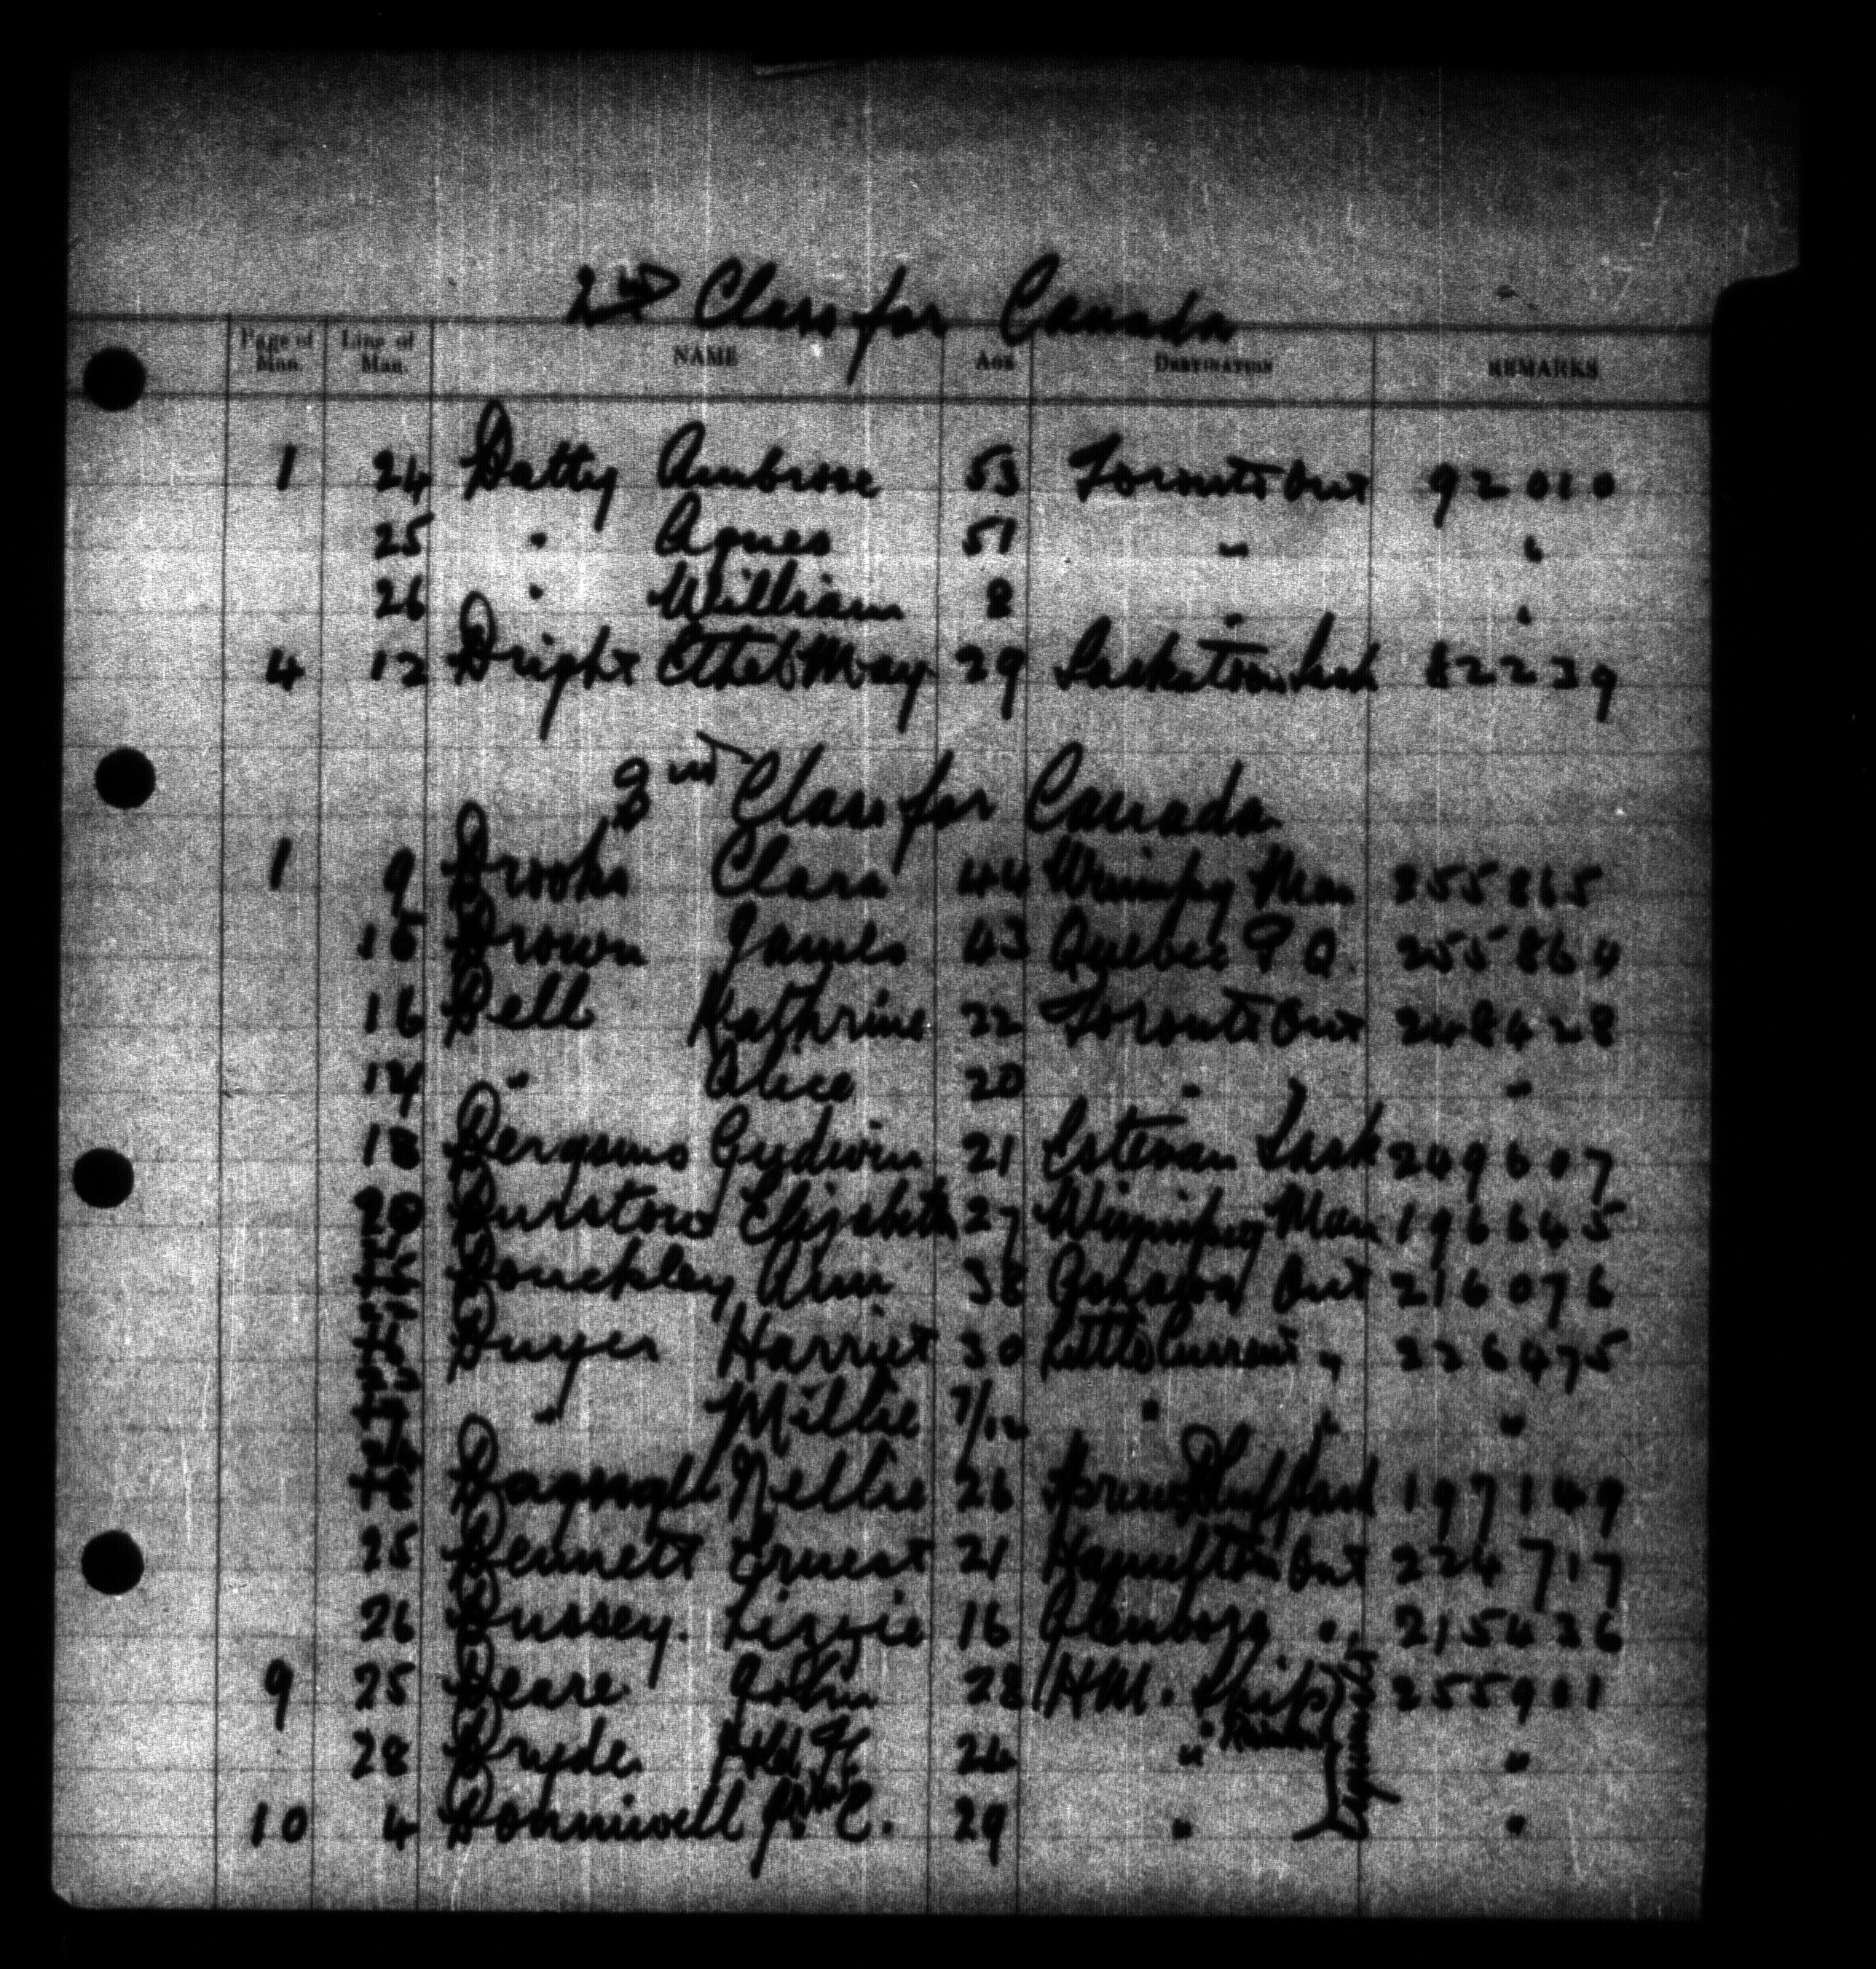 2nd Class for Canada
Page of Man. Line of Man. NAME Age DESTINATION REMARKS
1 24 Batty Ambrose 53 Toronto Ont 92010
25 " Agnes 51 " "
26 " William 8 " "
4 12 Bright Ethel May 29 Saskatoon Sask 82239
3rd Class for Canada
1 9 Brooks Clara 44 Winnipg Man 255865
15 Brown James 43 Quebec P Q 255864
16 Bell Kathrine 22 Toronto Ont 248428
17 " Alice 20 " "
18 Bergamo Gudwin 21 Estevan Sask 249607
20 Burstow Elizabeth 27 Winnipeg Man 196645
Bouckley Ann 38 Oshawa Ont 216076
Buyer Harriet 30 Little Current " 226475
" Millie 7/12 " " "
Nellie 26 197149
25 Bennett Ernest 21 Hamilton Ont 224717
26 Bussey Lizzie 16 Glenboro " 215436
9 25 Beare John 28 H.M. Ship 255901
28 Bryde 26 " Rainbow "
10 4 Bonniwell E. 29 " "
Esquimalt